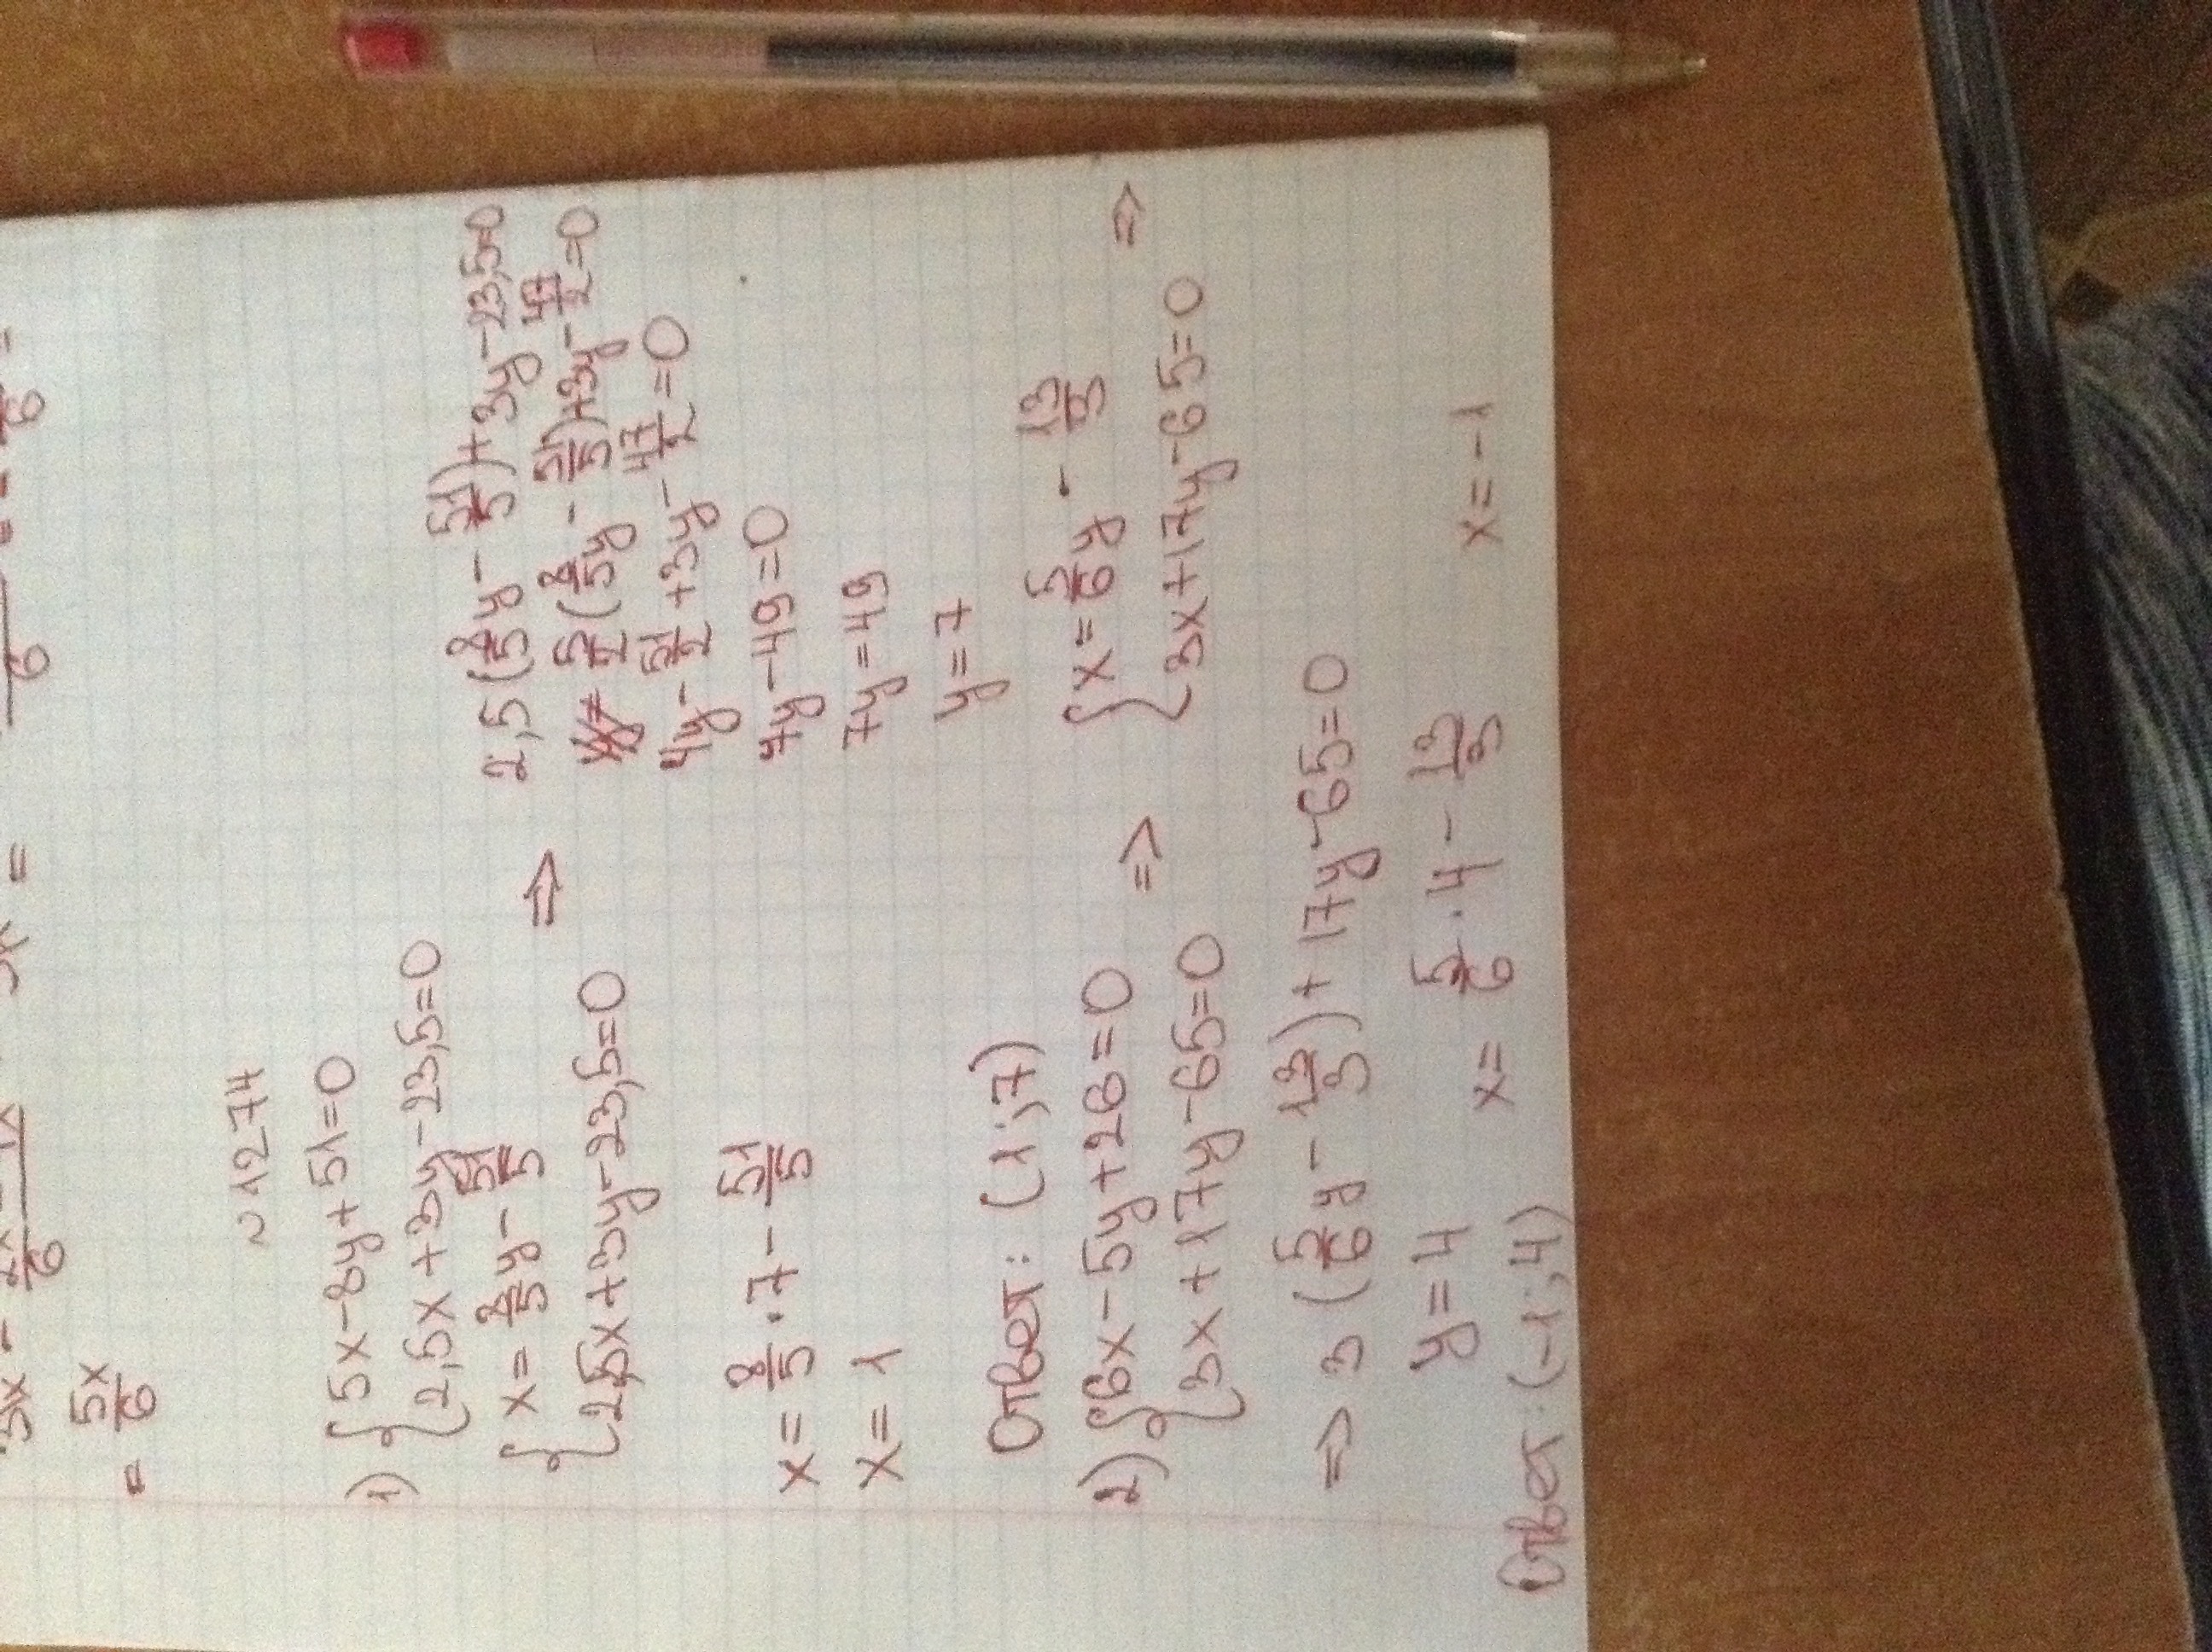 = 5x/6
~ 1274
1) { 5x-8y+51=0
2,5x+3y-23,5=0
{ x= 8/5 y - 51/5
2,5x+3y-23,5=0 =>
2,5(8/5 y - 51/5)+3y-23,5=0
5/2(8/5 y - 51/5)+3y- 47/2 =0
4y- 51/2 +3y- 47/2 =0
7y-49=0
7y=49
y=7
x= 8/5 · 7 - 51/5
x= 1
Ответ: (1;7)
2) { 6x-5y+26=0
3x+17y-65=0 =>
{ x= 5/6 y - 13/3
3x+17y-65=0 =>
=> 3 (5/6 y - 13/3)+17y-65=0
y=4 x= 5/6 · 4 - 13/3 x=-1
Ответ: (-1;4)